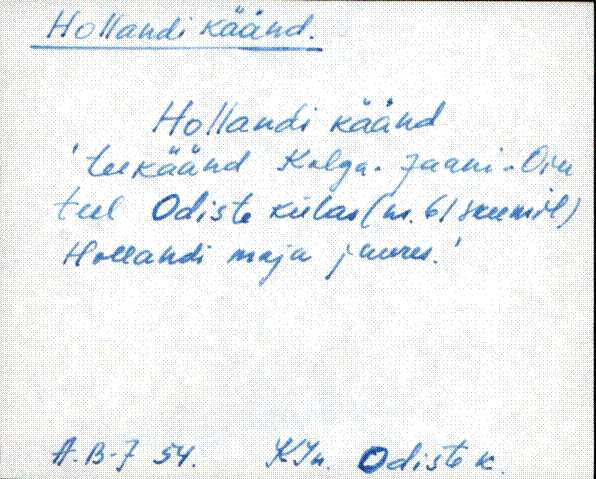 Hollandi käänd.
Hollandi käänd
'teekäänd Kolga-Jaani-Oiu
teel Odiste külas (nr. 61 skeemil)
Hollandi maja juures.'
A.B-7 54. KJn. Odiste k.